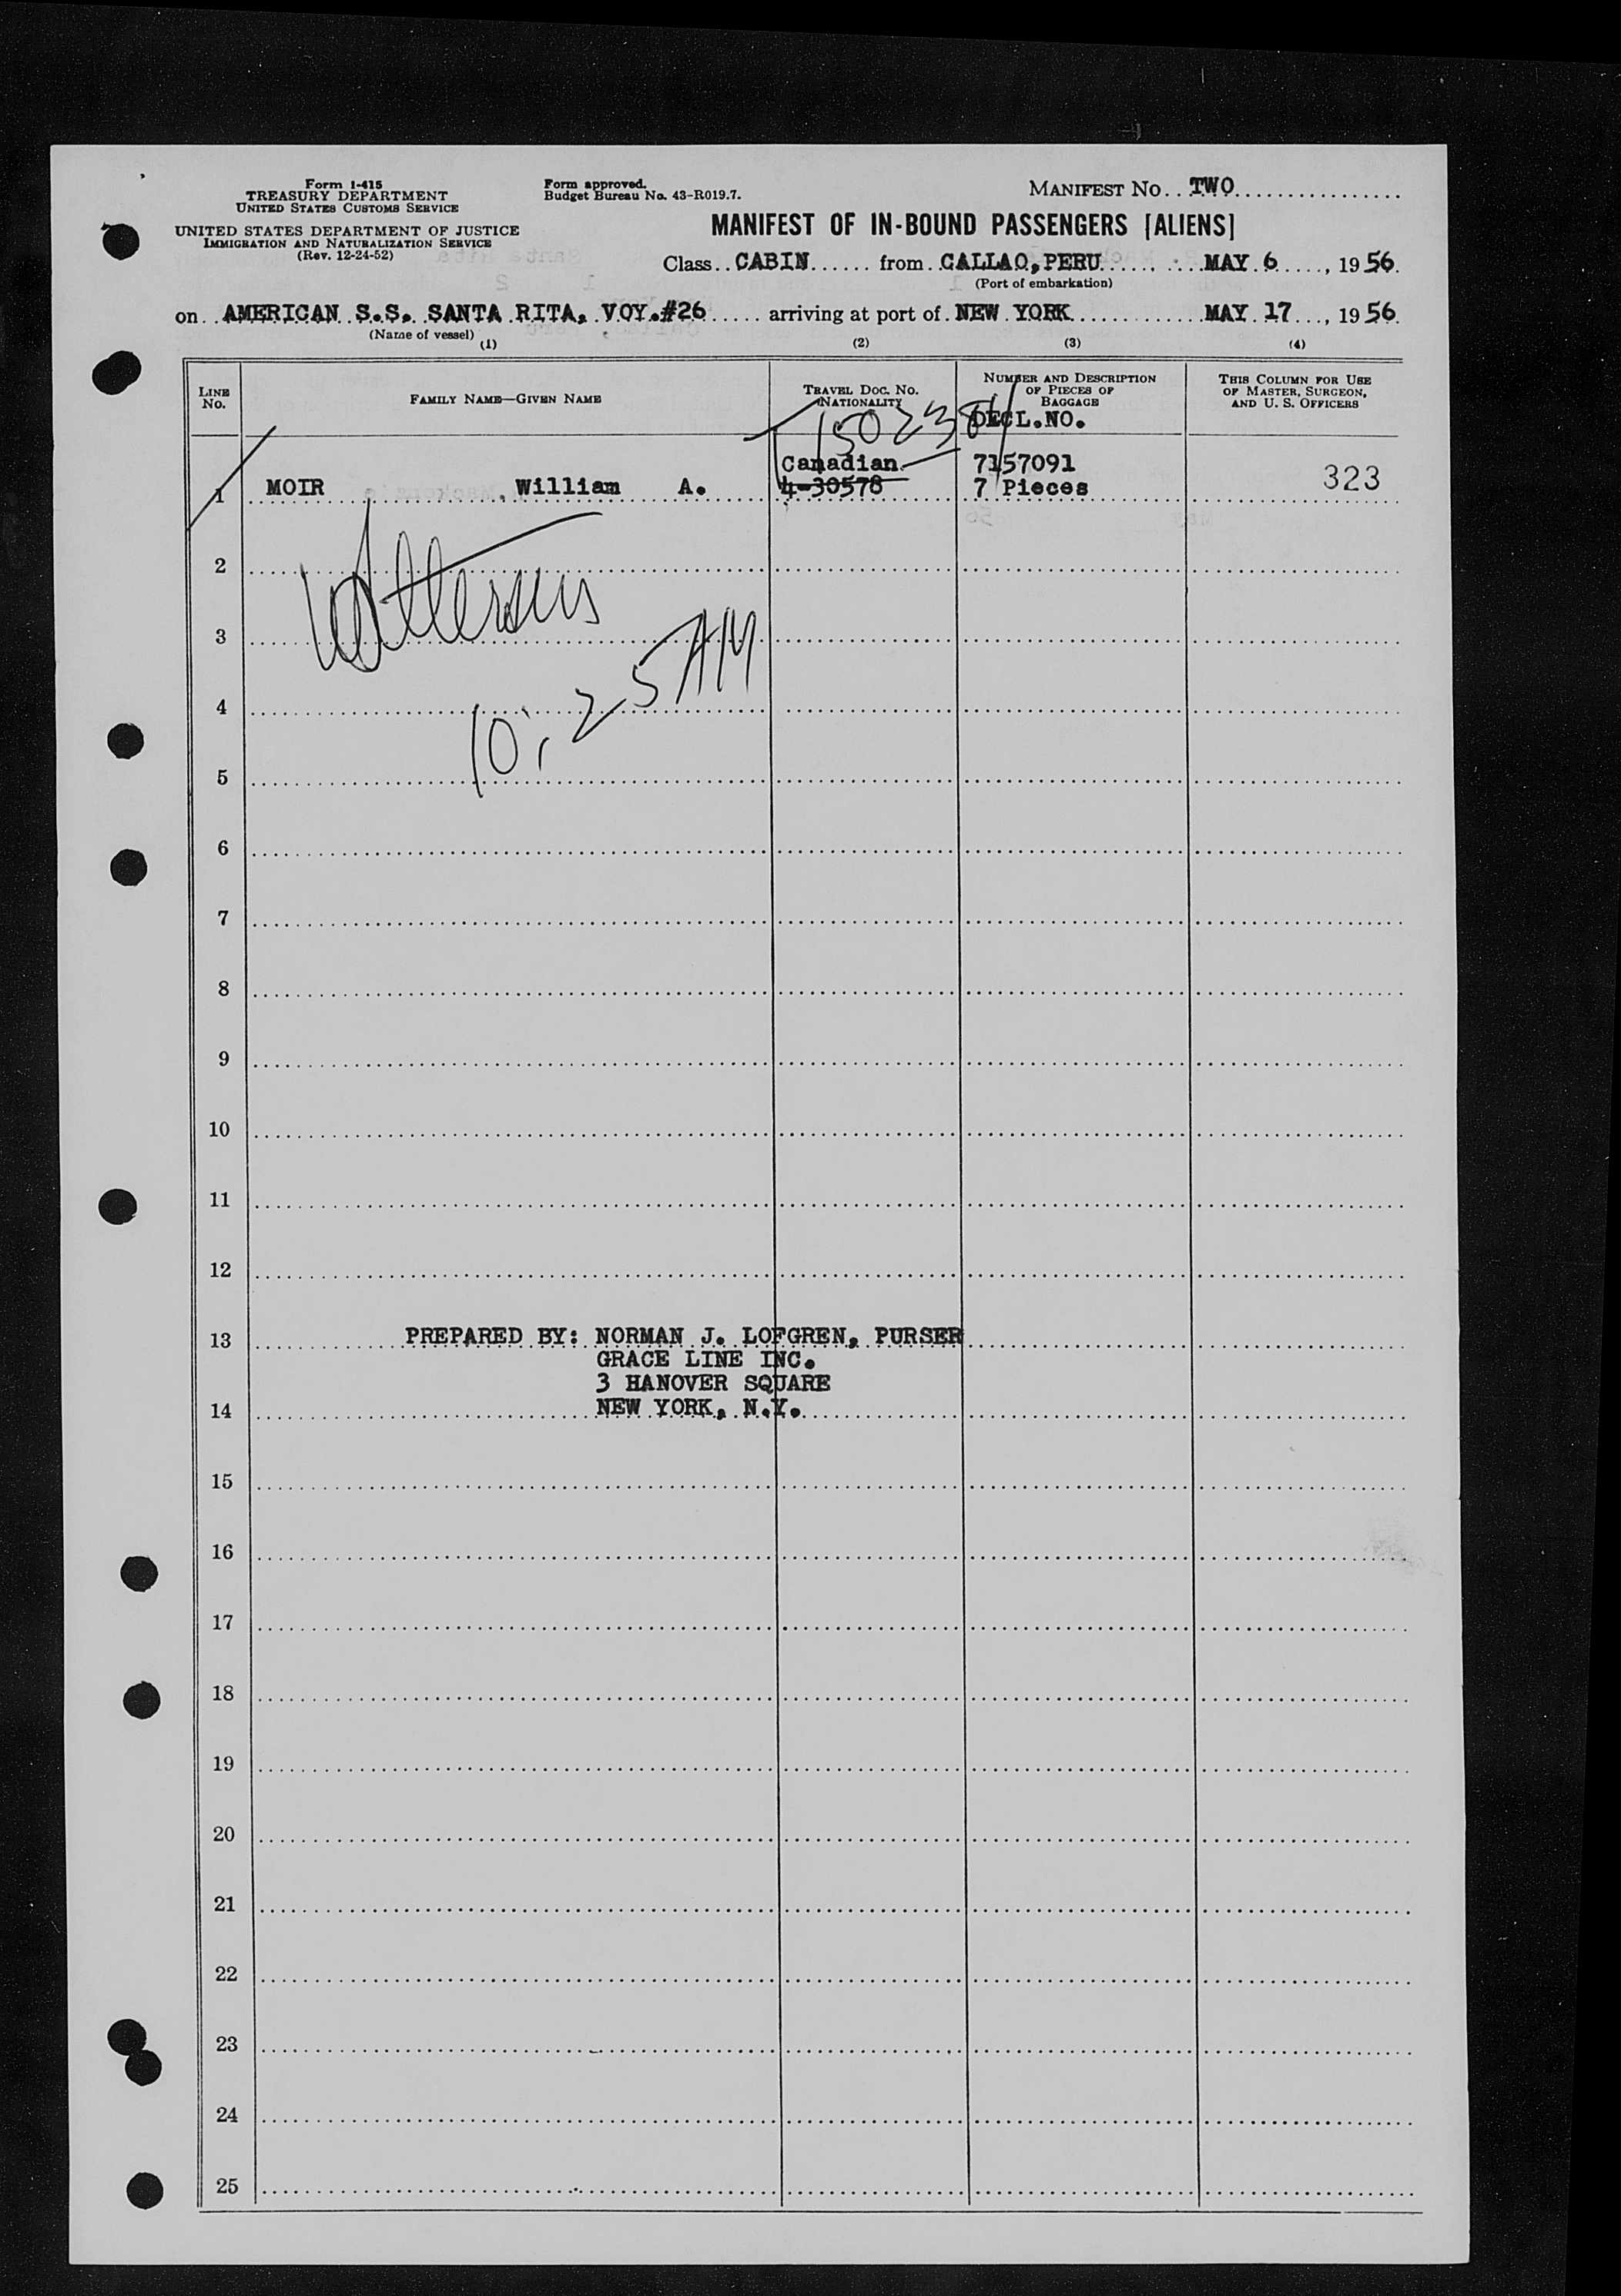 Form I-415
TREASURY DEPARTMENT
UNITED STATES CUSTOMS SERVICE
UNITED STATES DEPARTMENT OF JUSTICE
IMMIGRATION AND NATURALIZATION SERVICE
(Rev. 12-24-52)
Form approved.
Budget Bureau No. 43-R019.7.
MANIFEST NO. TWO
MANIFEST OF IN-BOUND PASSENGERS [ALIENS]
Class CABIN from CALLAO, PERU MAY 6, 1956.
(Port of embarkation)
on AMERICAN S.S. SANTA RITA, VOY.#26 arriving at port of NEW YORK MAY 17, 1956.
(Name of vessel)
(1) (2) (3) (4)
LINE NO.
FAMILY NAME—GIVEN NAME
TRAVEL DOC. NO. NATIONALITY
NUMBER AND DESCRIPTION OF PIECES OF BAGGAGE
DECL.NO.
THIS COLUMN FOR USE OF MASTER, SURGEON, AND U. S. OFFICERS
1502384
Canadian 7157091
1 MOIR, William A. 4-30578 7 Pieces 323
2
3
10:25 AM
4
5
6
7
8
9
10
11
12
13 PREPARED BY: NORMAN J. LOFGREN, PURSER
GRACE LINE INC.
3 HANOVER SQUARE
14 NEW YORK, N.Y.
15
16
17
18
19
20
21
22
23
24
25